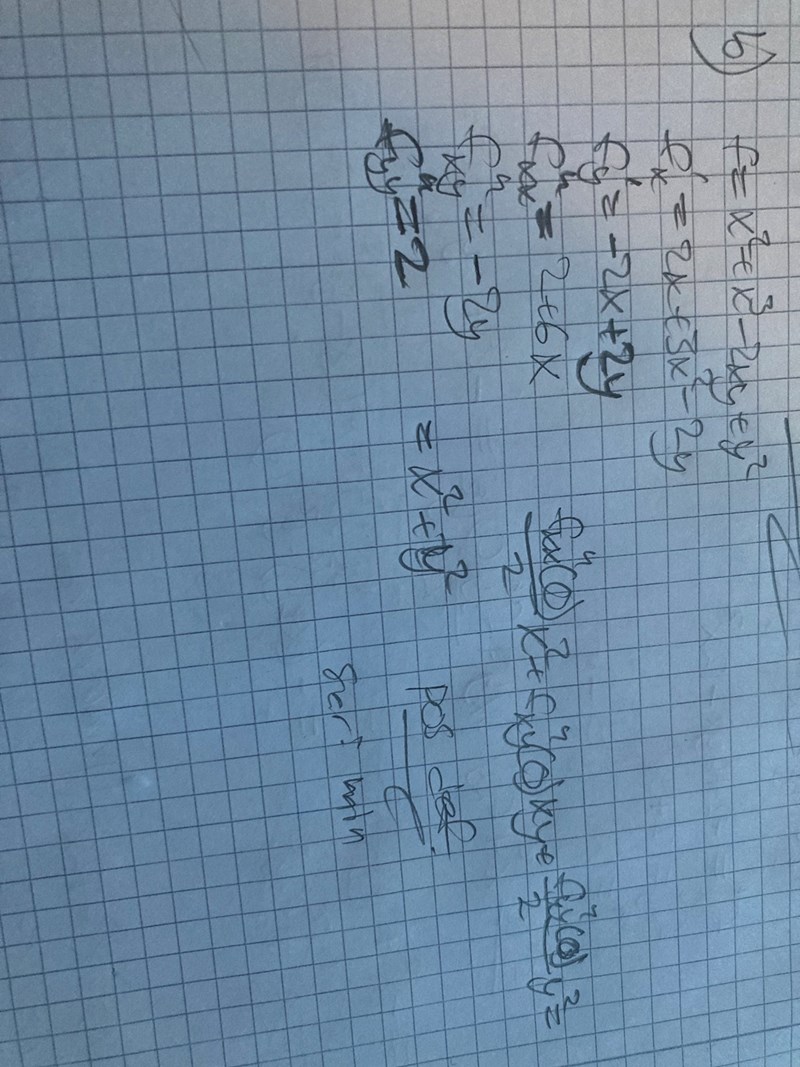 b)
f = x² + x³ - 2xy + y²
f'x = 2x + 3x² - 2y
f'y = -2x + 2y
f''xx = 2+6x
f''xy = -2y
f''yy = 2
f''xx(0)/2 x² + f''xy(0)xy + f''yy(0)/2 y² =
= x² + y²
pos def.
min